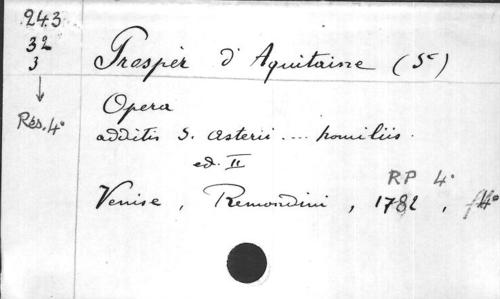 243
32
3
↓
Rés. 4°
Prosper d'Aquitaine (St)
Opera
additis S. Asterii ... homiliis.
ed. II
RP 4°
Venise, Remondini, 1782, f4°